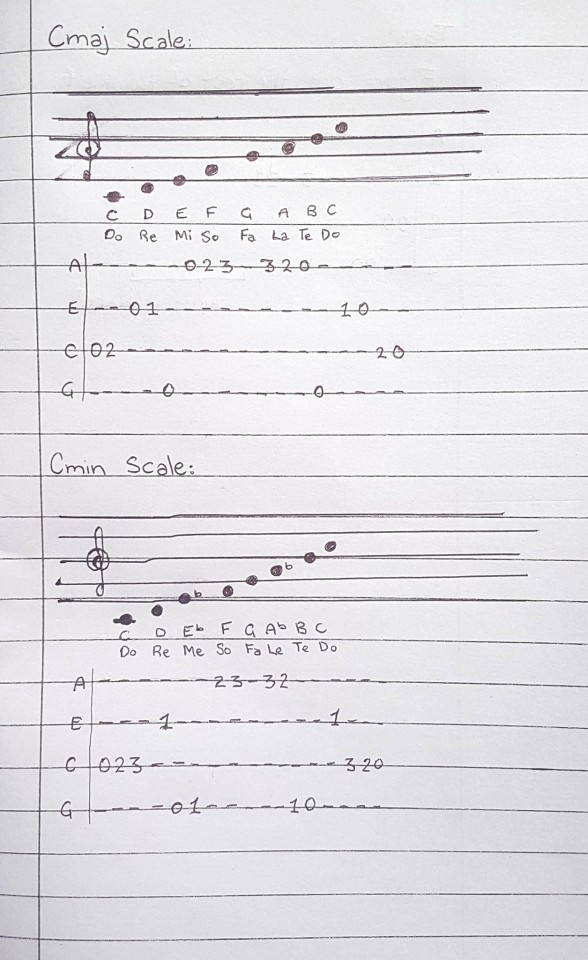 Cmaj Scale:
C D E F G A B C
Do Re Mi So Fa La Te Do
A|------023--320------
E|---01-----------10---
C|02----------------20
G|-----0---------0-----
Cmin Scale:
b b
C D Eb F G Ab B C
Do Re Me So Fa Le Te Do
A|-------23-32-------
E|----1-----------1--
C|023------------320
G|-----01-----10----